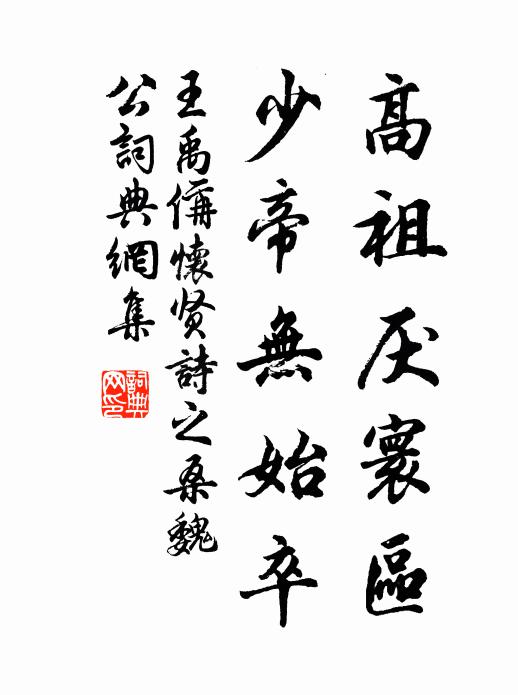 高祖厌寰區
少帝無始卒
王禹偁懷贤詩之桑魏
公詞典網集
詞典
网印